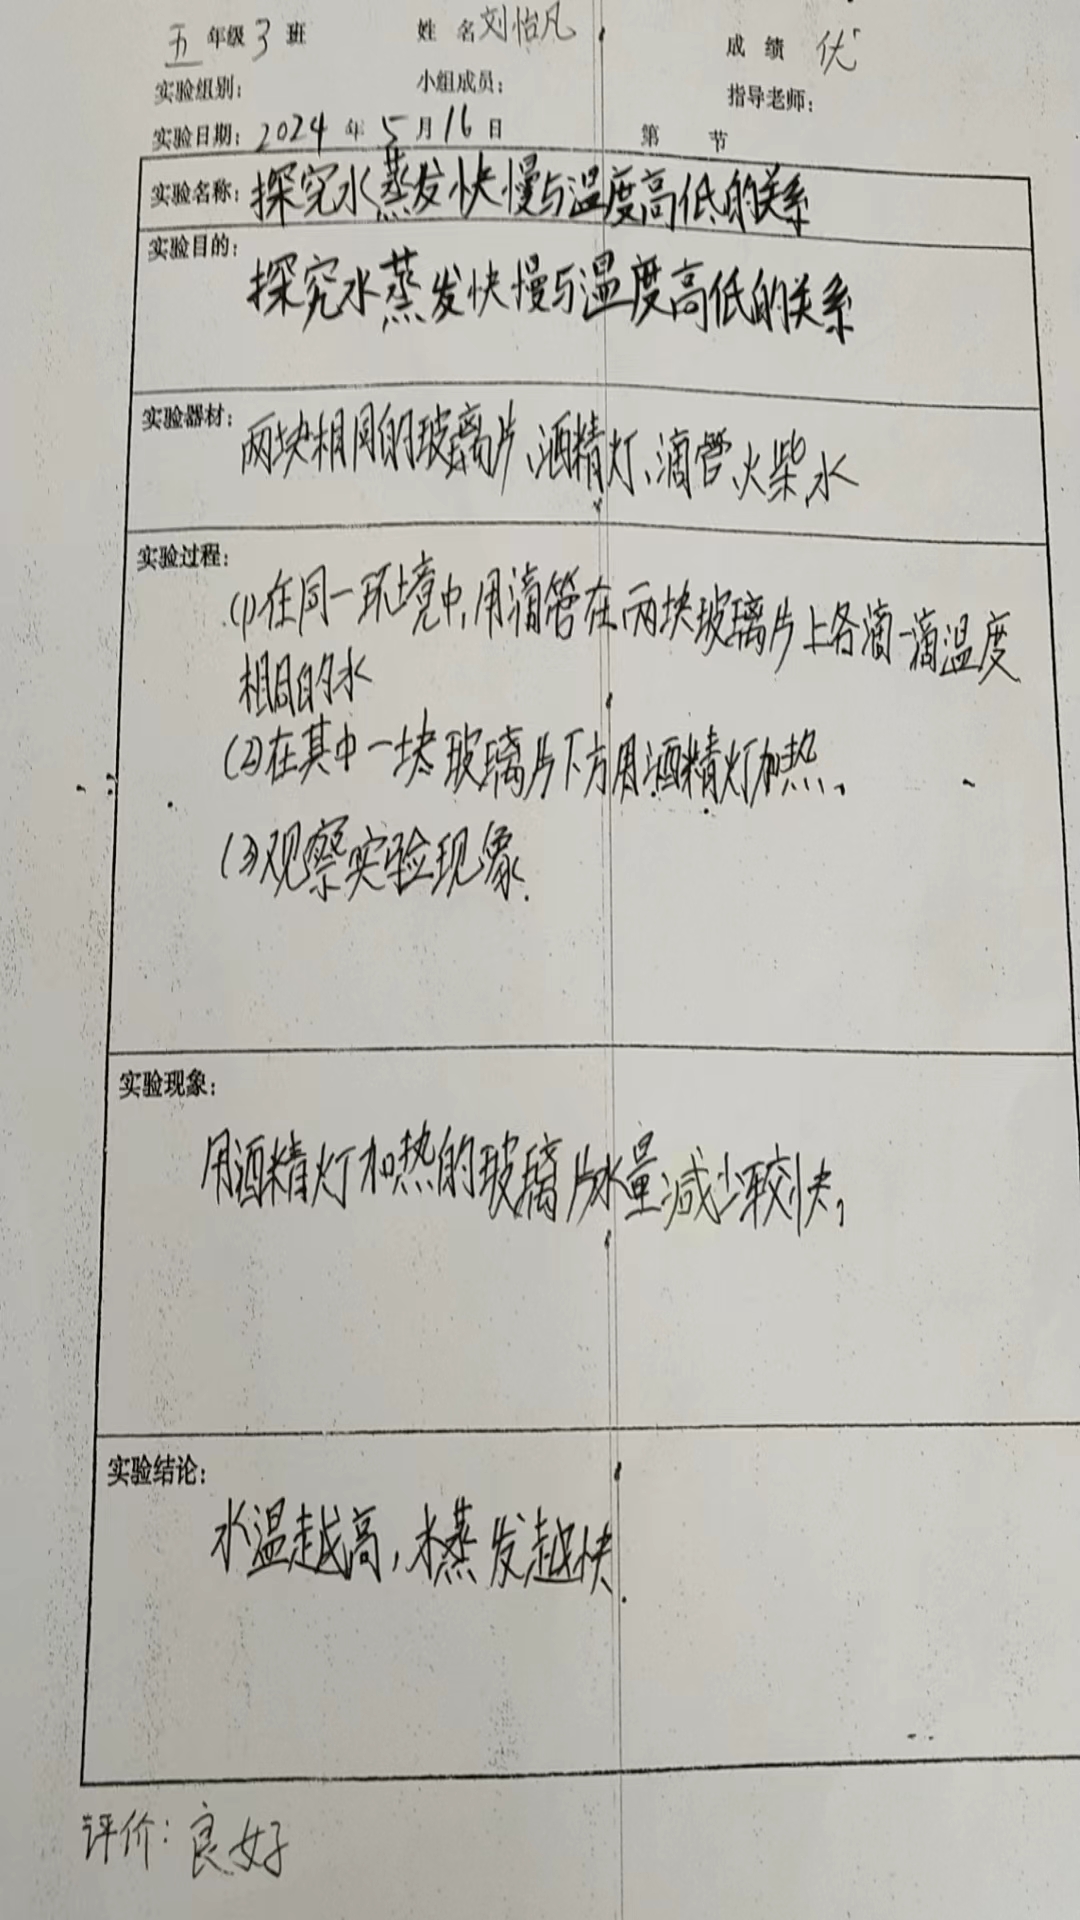 五年级3班 姓名刘怡凡 成绩 优
实验组别: 小组成员: 指导老师:
实验日期: 2024年5月16日 第 节
实验名称: 探究水蒸发快慢与温度高低的关系
实验目的:
探究水蒸发快慢与温度高低的关系
实验器材: 两块相同的玻璃片、酒精灯、滴管、火柴、水
实验过程:
(1)在同一环境中,用滴管在两块玻璃片上各滴一滴温度
相同的水
(2)在其中一块玻璃片下方用酒精灯加热,
(3)观察实验现象.
实验现象:
用酒精灯加热的玻璃片水量减少较快,
实验结论:
水温越高,水蒸发越快.
评价: 良好